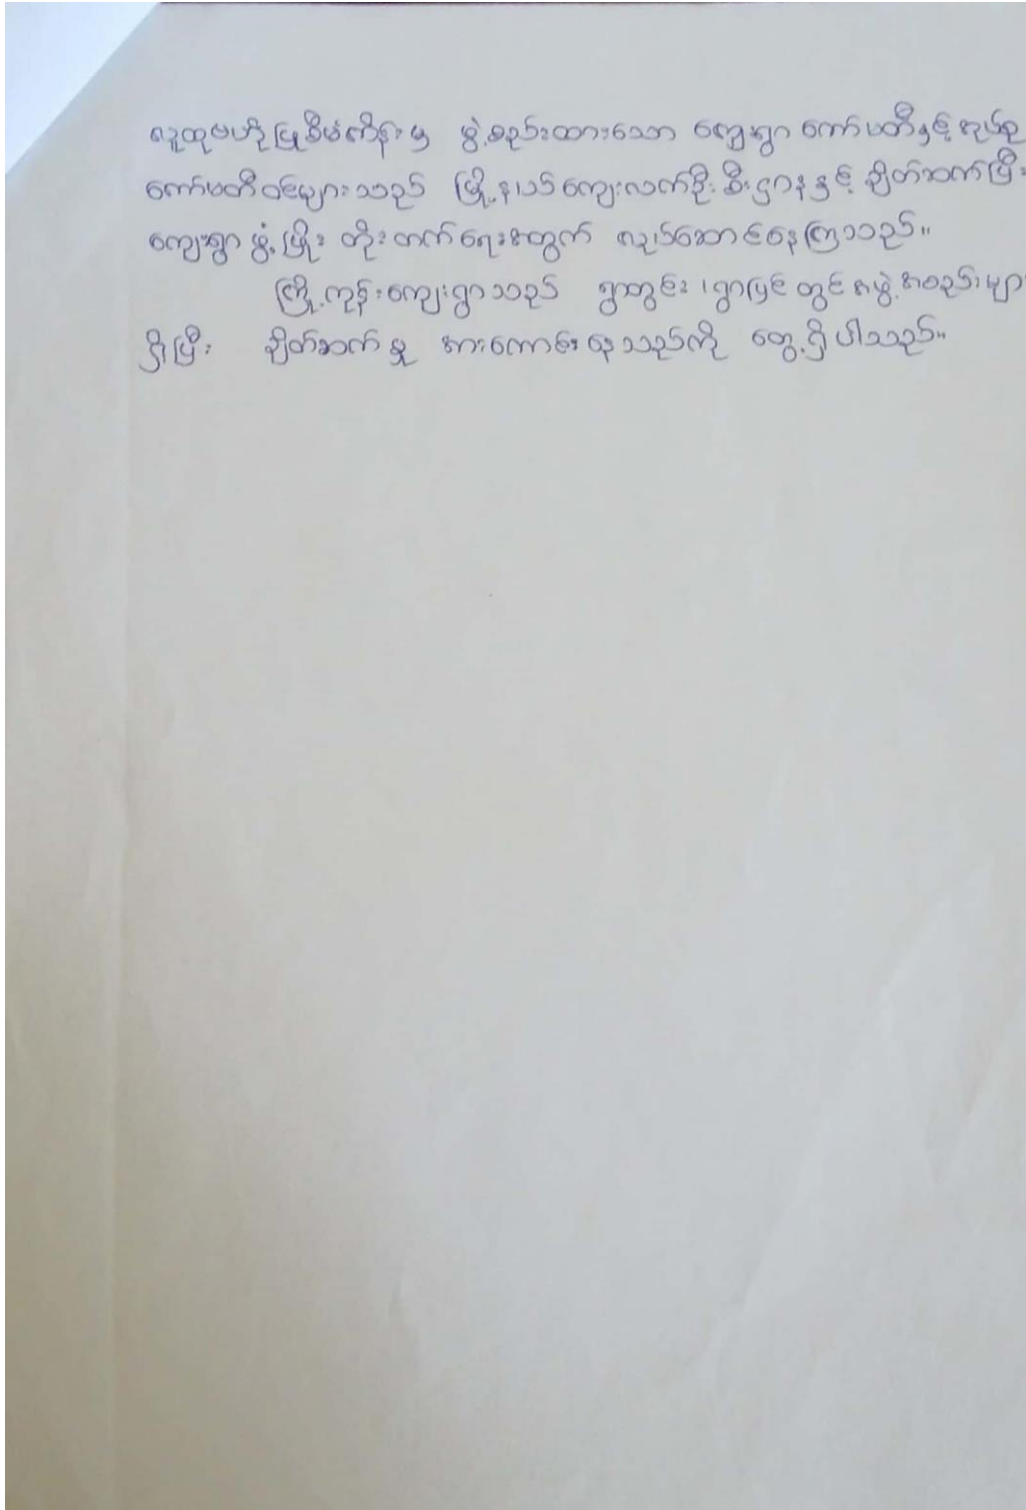 လူထုဗဟိုပြုစီမံကိန်းမှ ဖွဲ့စည်းထားသော ကျေးရွာ ကော်မတီနှင့် အုပ်စု
ကော်မတီဝင်များသည် မြို့နယ်ကျေးလက်ဦးစီးဌာနနှင့် ချိတ်ဆက်ပြီး
ကျေးရွာဖွံ့ဖြိုး တိုးတက်ရေးအတွက် လုပ်ဆောင်နေကြသည်။
ကြို့ကုန်းကျေးရွာသည် ရွာတွင်း ၊ ရွာပြင်တွင် အဖွဲ့အစည်းများ
ရှိပြီး ချိတ်ဆက်မှု အားကောင်းနေသည်ကို တွေ့ရှိပါသည်။